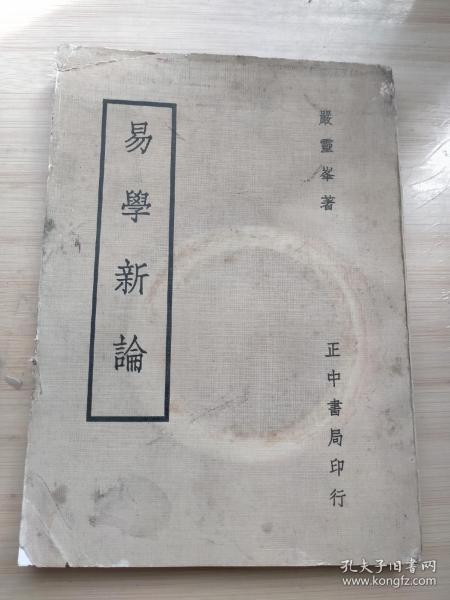 嚴靈峯著
易學新論
正中書局印行
孔夫子旧书网
www.kongfz.com